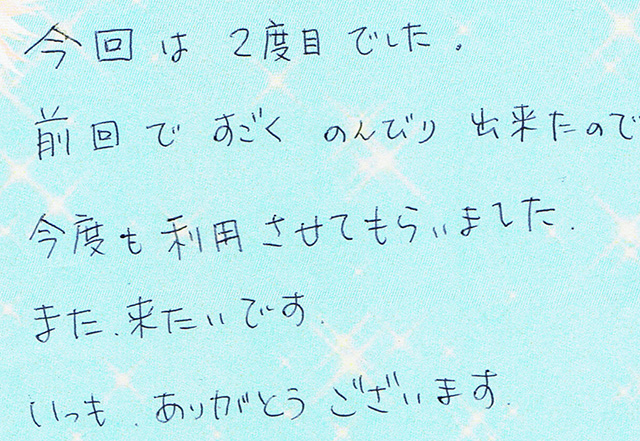 今回は2度目でした.
前回ですごくのんびり出来たので
今度も利用させてもらいました.
また.来たいです.
いつも.ありがとうございます.